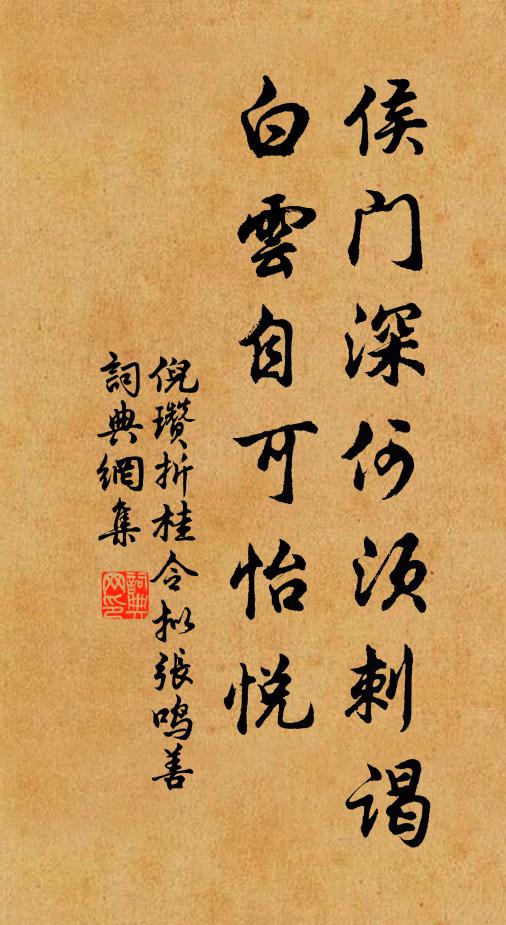 侯门深何须刺谒
白雲自可怡悦
倪瓚折桂令拟張鸣善
詞典網集
詞典網印